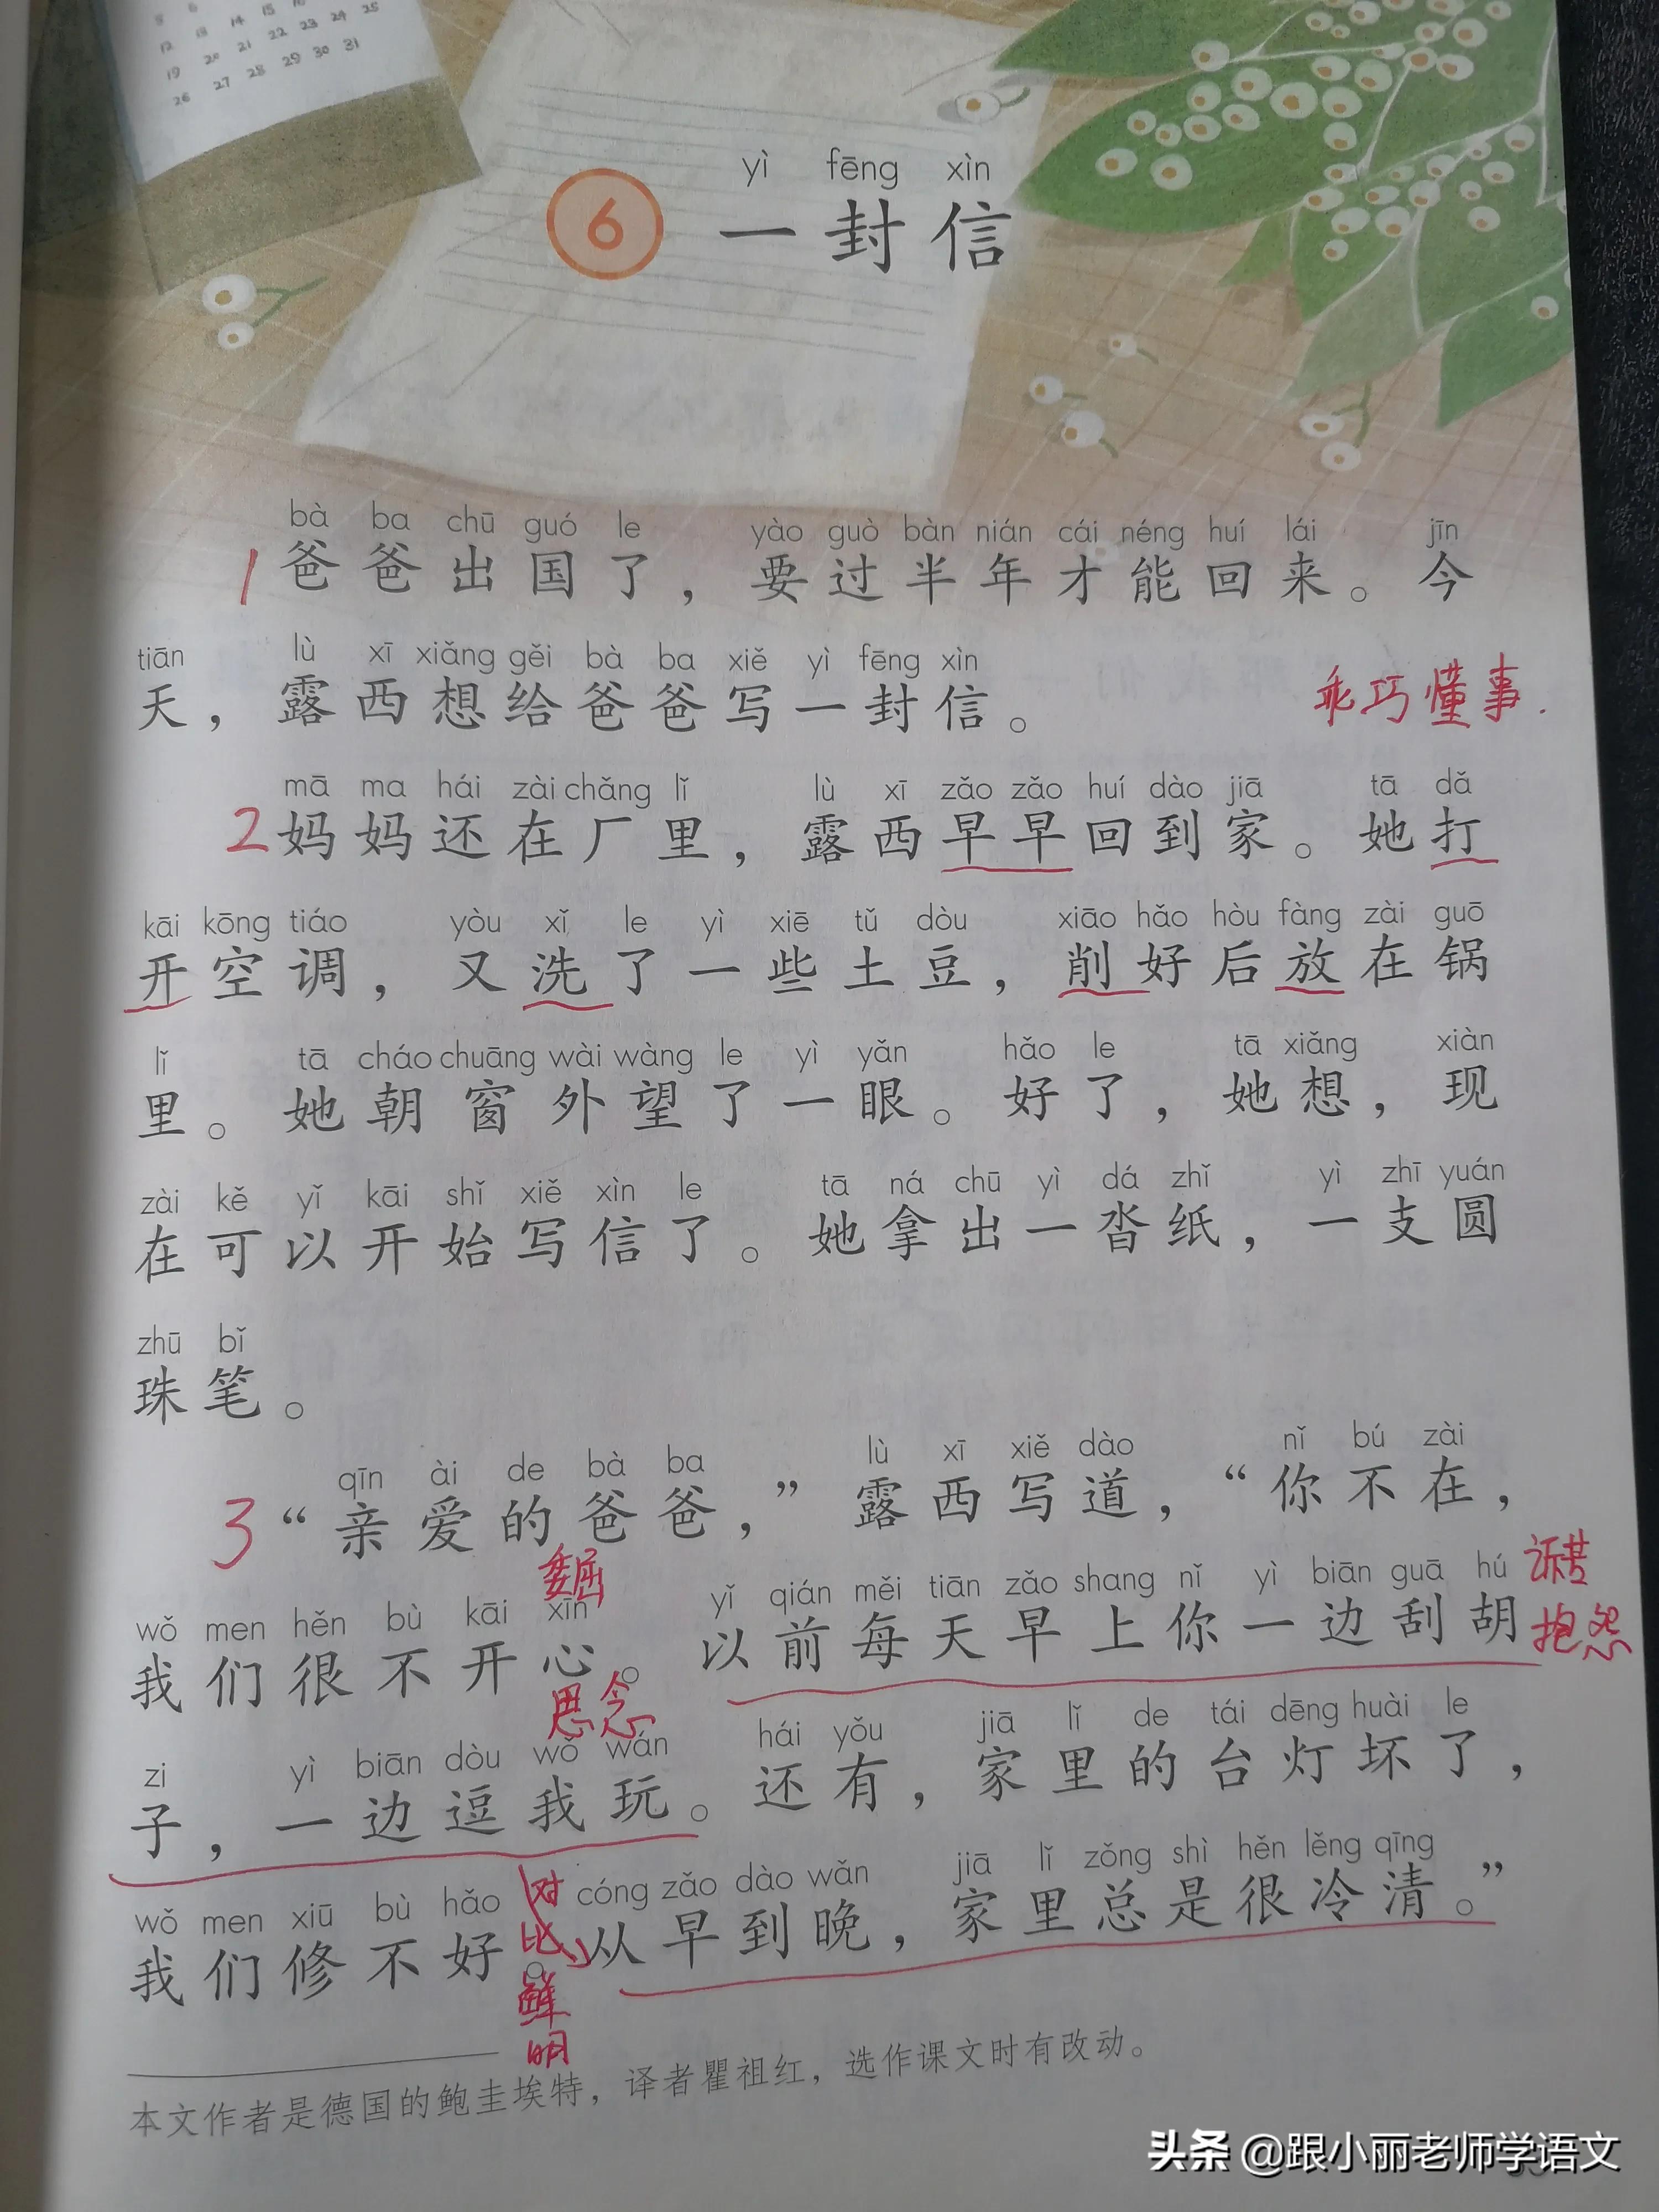 8 6 14 15 16
12 13 14 22 23 24 25
19 20 21 29 30 31
26 27 28
yì fēng xìn
6 一封信
bà ba chū guó le yào guò bàn nián cái néng huí lái jīn
1 爸爸出国了，要过半年才能回来。今
tiān lù xī xiǎng gěi bà ba xiě yì fēng xìn
天，露西想给爸爸写一封信。
乖巧懂事.
mā ma hái zài chǎng lǐ lù xī zǎo zǎo huí dào jiā tā dǎ
2 妈妈还在厂里，露西早早回到家。她打
kāi kōng tiáo yòu xǐ le yì xiē tǔ dòu xiāo hǎo hòu fàng zài guō
开空调，又洗了一些土豆，削好后放在锅
lǐ tā cháo chuāng wài wàng le yì yǎn hǎo le tā xiǎng xiàn
里。她朝窗外望了一眼。好了，她想，现
zài kě yǐ kāi shǐ xiě xìn le tā ná chū yì dá zhǐ yì zhī yuán
在可以开始写信了。她拿出一沓纸，一支圆
zhū bǐ
珠笔。
qīn ài de bà ba lù xī xiě dào nǐ bú zài
3 “亲爱的爸爸，”露西写道，“你不在，
委屈
诉苦
抱怨
wǒ men hěn bù kāi xīn yǐ qián měi tiān zǎo shang nǐ yì biān guā hú
我们很不开心。以前每天早上你一边刮胡
思念
zi yì biān dòu wǒ wán hái yǒu jiā lǐ de tái dēng huài le
子，一边逗我玩。还有，家里的台灯坏了，
wǒ men xiū bù hǎo cóng zǎo dào wǎn jiā lǐ zǒng shì hěn lěng qīng
我们修不好。从早到晚，家里总是很冷清。”
对
比
鲜
明
本文作者是德国的鲍圭埃特，译者瞿祖红，选作课文时有改动。
头条 @跟小丽老师学语文